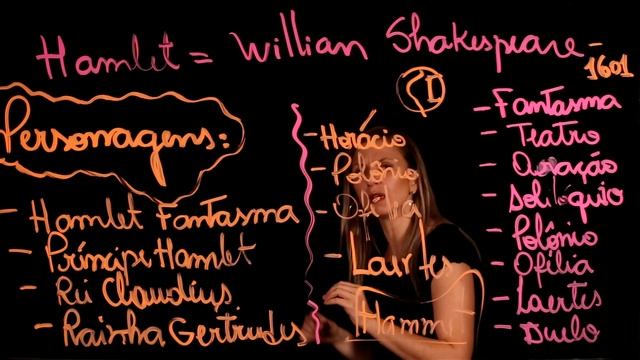 Hamlet = Willian Shakespeare -
1601
Personagens:
- Hamlet Fantasma
- Príncipe Hamlet
- Rei Claudius
- Rainha Gertrudes
- Horácio
- Polônio
- Ofélia
- Laertes
- Fantasma
- Teatro
- Oração
- Solilóquio
- Polônio
- Ofília
- Laertes
- Duelo